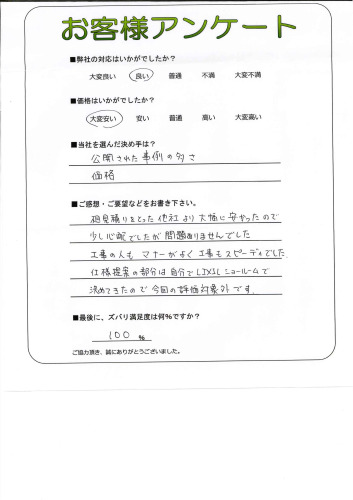 お客様アンケート
■弊社の対応はいかがでしたか?
大変良い 良い 普通 不満 大変不満
■価格はいかがでしたか?
大変安い 安い 普通 高い 大変高い
■当社を選んだ決め手は?
公開された事例の多さ
価格
■ご感想・ご要望などをお書き下さい。
相見積りをとった他社より大幅に安かったので
少し心配でしたが問題ありませんでした
工事の人も マナーがよく工事もスピーディでした
仕様提案の部分は自分でLIXILショールームで
決めてきたので今回の評価対象外です。
■最後に、ズバリ満足度は何%ですか?
100 %
ご協力頂き、誠にありがとうございました。